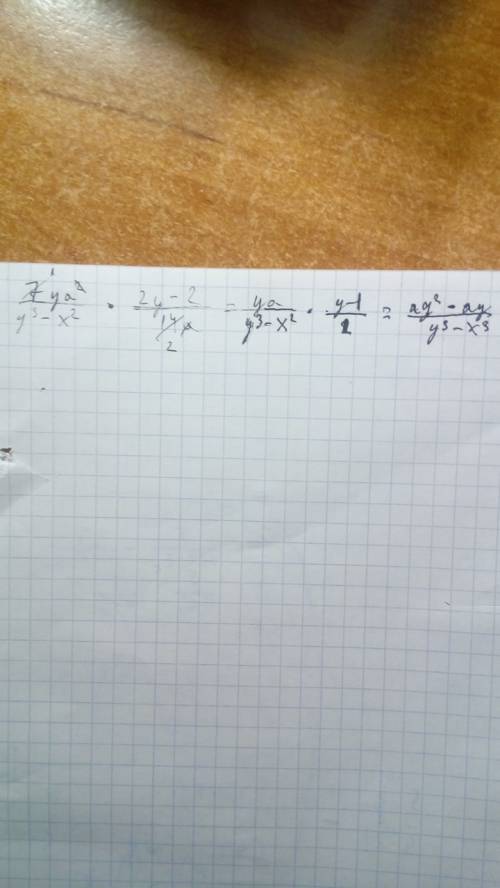 7ya²/(y³ - x²) · (2y - 2)/(14a) = ya/(y³ - x²) · (y-1)/1 = (ay² - ay)/(y³ - x³)